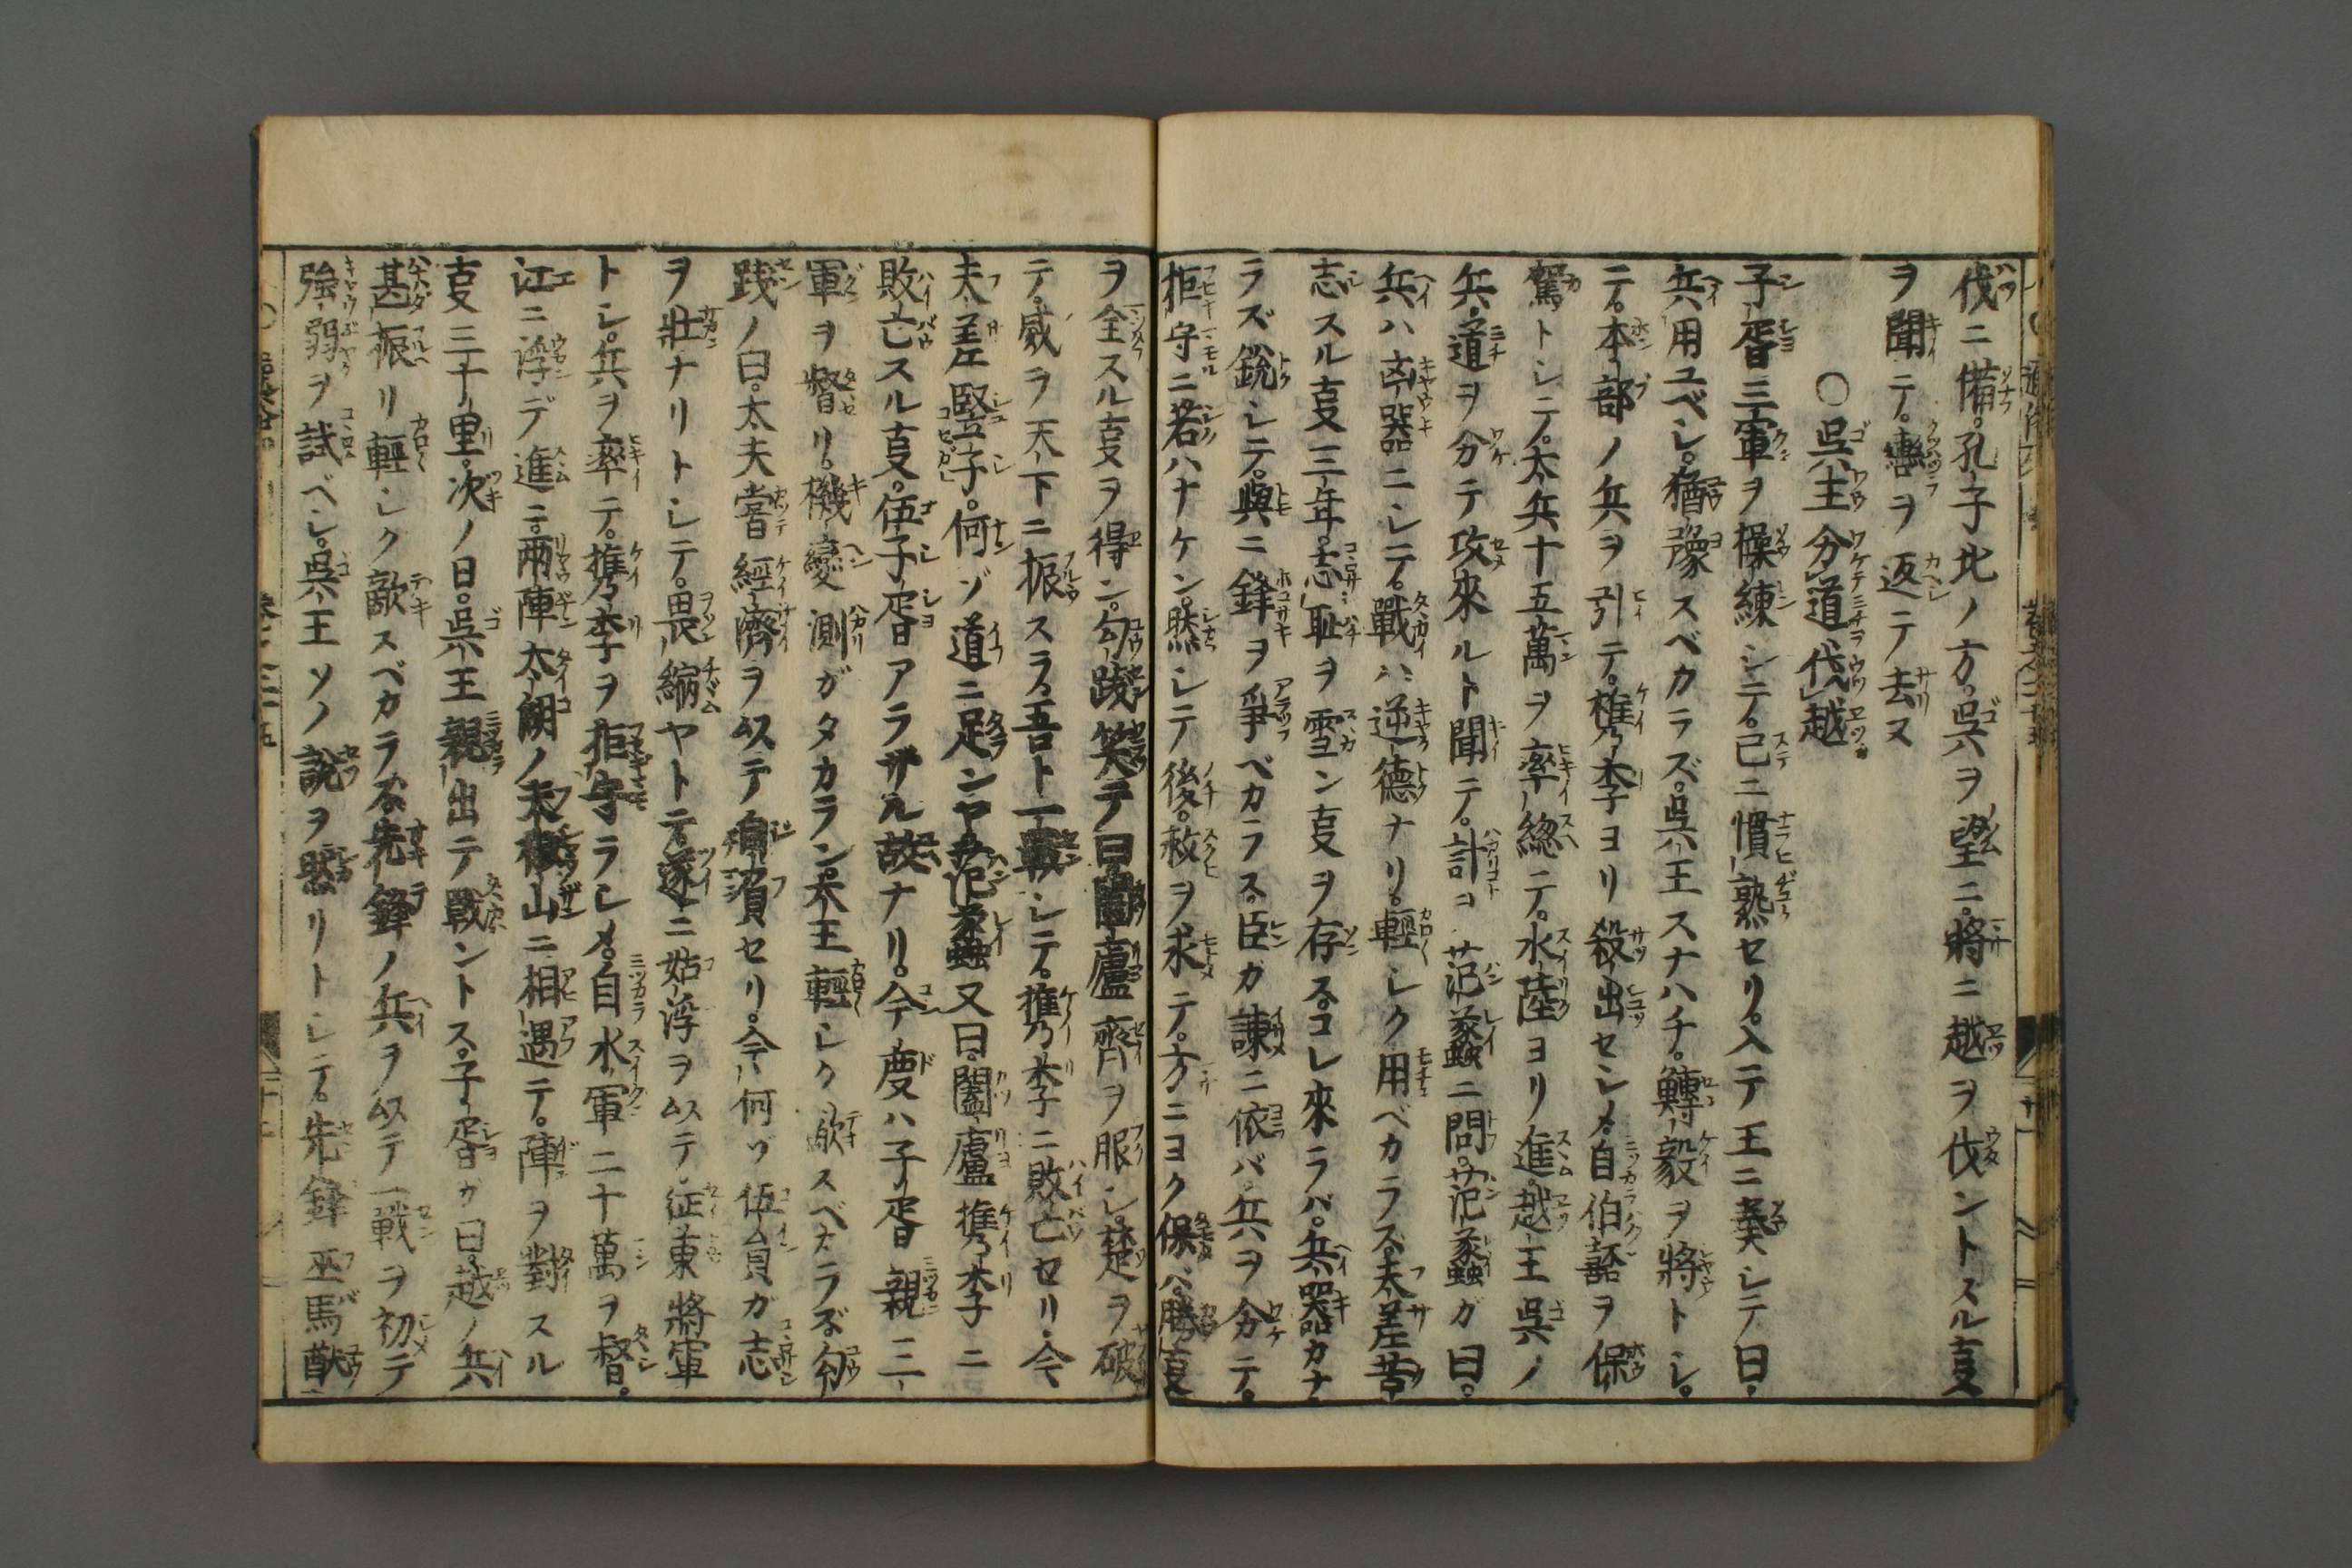 伐ニ備。孔子北ノ方。呉ヲ望ニ。將ニ越ヲ伐ントスル㕝
ヲ聞テ。轡ヲ返テ去ヌ
○呉王分道伐越
子胥三軍ヲ操練シテ。已ニ慣熟セリ。入テ王ニ奏シテ曰。
兵用ユベシ。猶豫スベカラズ。呉王スナハチ。鱄毅ヲ將トシ。
テ。本部ノ兵ヲ引テ。檇李ヨリ殺出セシメ。自伯嚭ヲ保
駕トシテ。太兵十五萬ヲ率總テ。水陸ヨリ進。越王呉ノ
兵。道ヲ分テ攻來ルト聞テ。計ヿ范蠡ニ問。范蠡ガ曰。
兵ハ凶器ニシテ。戰ハ逆德ナリ。輕シク用ベカラス。夫差苦
志スル㕝三年。志恥ヲ雪ン㕝ヲ存ス。コレ來ラバ。兵器カナ
ラズ銳シテ。與ニ鋒ヲ爭ベカラス。臣ガ諫ニ依バ。兵ヲ分テ。
拒守ニ若ハナケン。然シテ後。救ヲ求テ。方ニヨク保バ。勝㕝
ヲ全スル㕝ヲ得ン。勾踐笑テ曰。闔廬齊ヲ服シ。楚ヲ破
テ。威ヲ天下ニ振スラ。吾ト一戰シテ。檇李ニ敗亡セリ。今
夫差豎子。何ゾ道ニ足ンヤ。范蠡又曰。闔廬檇李ニ
敗亡スル㕝。伍子胥アラサル故ナリ。今度ハ子胥親三
軍ヲ督リ。機變測ガタカラン。大王輕シク敵スベカラズ。勾
踐ノ曰。太夫嘗經濟ヲ以テ自負セリ。今何ゾ伍員ガ志
ヲ壯ナリトシテ。畏縮ヤトテ。遂ニ姑浮ヲ以テ征東將軍
トシ。兵ヲ率テ。檇李ヲ拒守ラシメ。自水軍二十萬ヲ督。
江ニ浮デ進ニ。兩陣太湖ノ夫椒山ニ相遇テ。陣ヲ對スル
㕝三十里。次ノ日。呉王親出テ戰ントス。子胥ガ曰。越ノ兵
甚振リ。輕シク敵スベカラズ。先鋒ノ兵ヲ以テ一戰ヲ初テ
強弱ヲ試ベシ。呉王ソノ說ヲ然リトシテ。先鋒巫馬猷